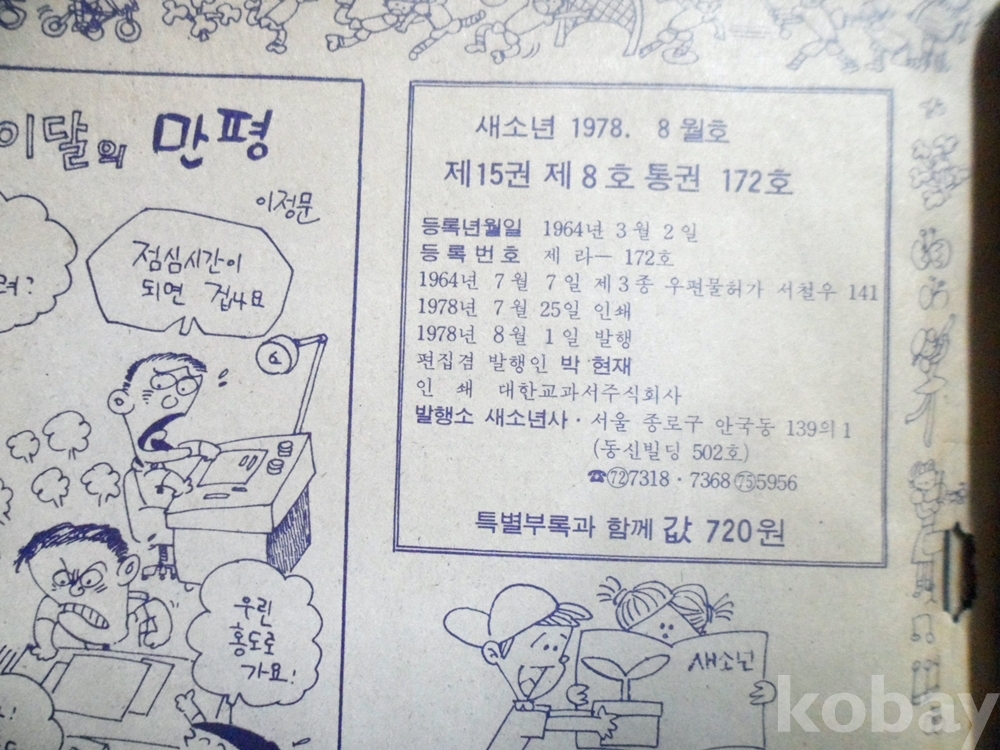 이달의 만평
이정문
점심시간이
되면 겁나요
우린
홍도로
가요!
새소년 1978. 8월호
제15권 제8호 통권 172호
등록년월일 1964년 3월 2일
등록번호 제 라— 172호
1964년 7월 7일 제3종 우편물허가 서철우 141
1978년 7월 25일 인쇄
1978년 8월 1일 발행
편집겸 발행인 박현재
인 쇄 대한교과서주식회사
발행소 새소년사・서울 종로구 안국동 139의1
(동신빌딩 502호)
☎㉒7318・7368 ㉕5956
특별부록과 함께 값 720원
새소년
kobay